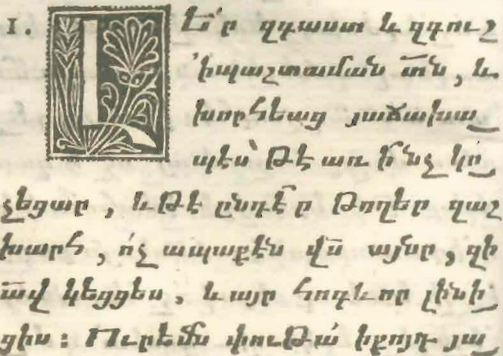 1. ԼԵ՛ր զգաստ և զգուշ
՛ի պաշտաման տ̅ն, և
խորհեաց յաճախա
պէս՝ թէ առ ի՞նչ կո
չեցար, և թէ ընդէ՞ր թողեր զաշ
խարհ, ո՛չ ապաքէն վս̅ այնր, զի
ա̅վ կեցցես, և այր հոգևոր լինի
ցիս։ Ուրեմն փութա՛ ի քոյդ յա